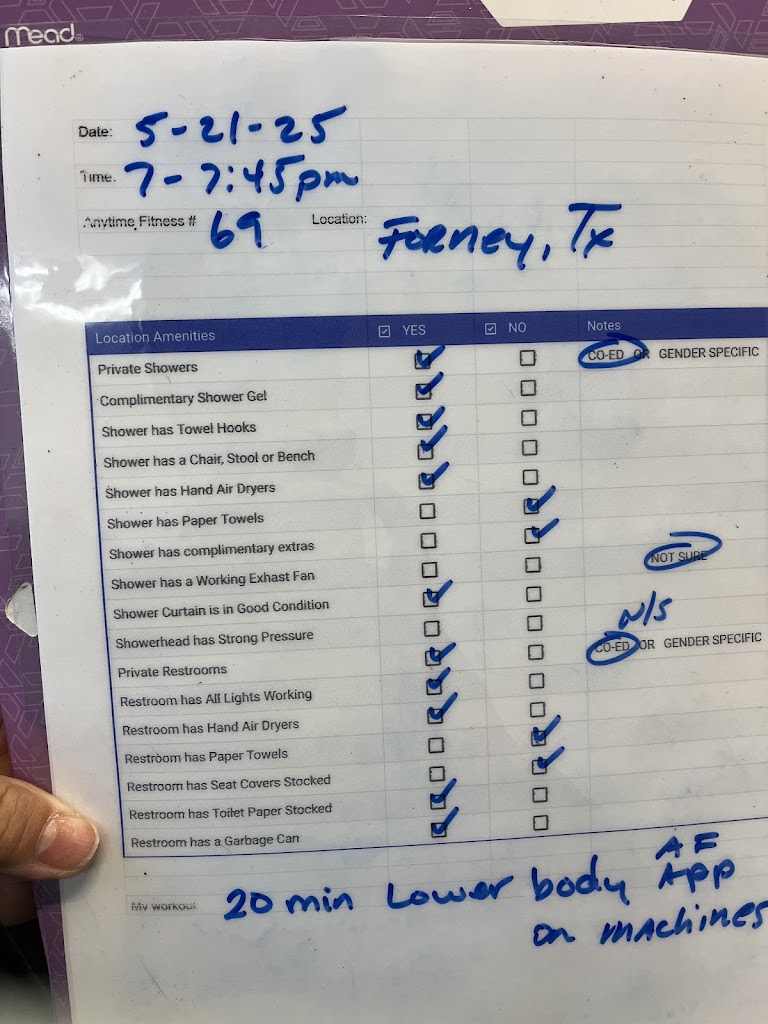 Mead
Date: 5-21-25
Time. 7-7:45pm
Anytime Fitness # 69 Location: Forney, Tx
Location Amenities ☑ YES ☑ NO Notes
Private Showers ☑ ☐ CO-ED OR GENDER SPECIFIC
Complimentary Shower Gel ☑ ☐
Shower has Towel Hooks ☑ ☐
Shower has a Chair, Stool or Bench ☑ ☐
Shower has Hand Air Dryers ☑ ☐
Shower has Paper Towels ☐ ☑
Shower has complimentary extras ☐ ☑
Shower has a Working Exhast Fan ☐ ☐ NOT SURE
Shower Curtain is in Good Condition ☑ ☐
Showerhead has Strong Pressure ☐ ☐ N/S
Private Restrooms ☑ ☐ CO-ED OR GENDER SPECIFIC
Restroom has All Lights Working ☑ ☐
Restroom has Hand Air Dryers ☑ ☐
Restroom has Paper Towels ☐ ☑
Restroom has Seat Covers Stocked ☐ ☑
Restroom has Toilet Paper Stocked ☑ ☐
Restroom has a Garbage Can ☑ ☐
My workout 20 min Lower body AF App
on machines